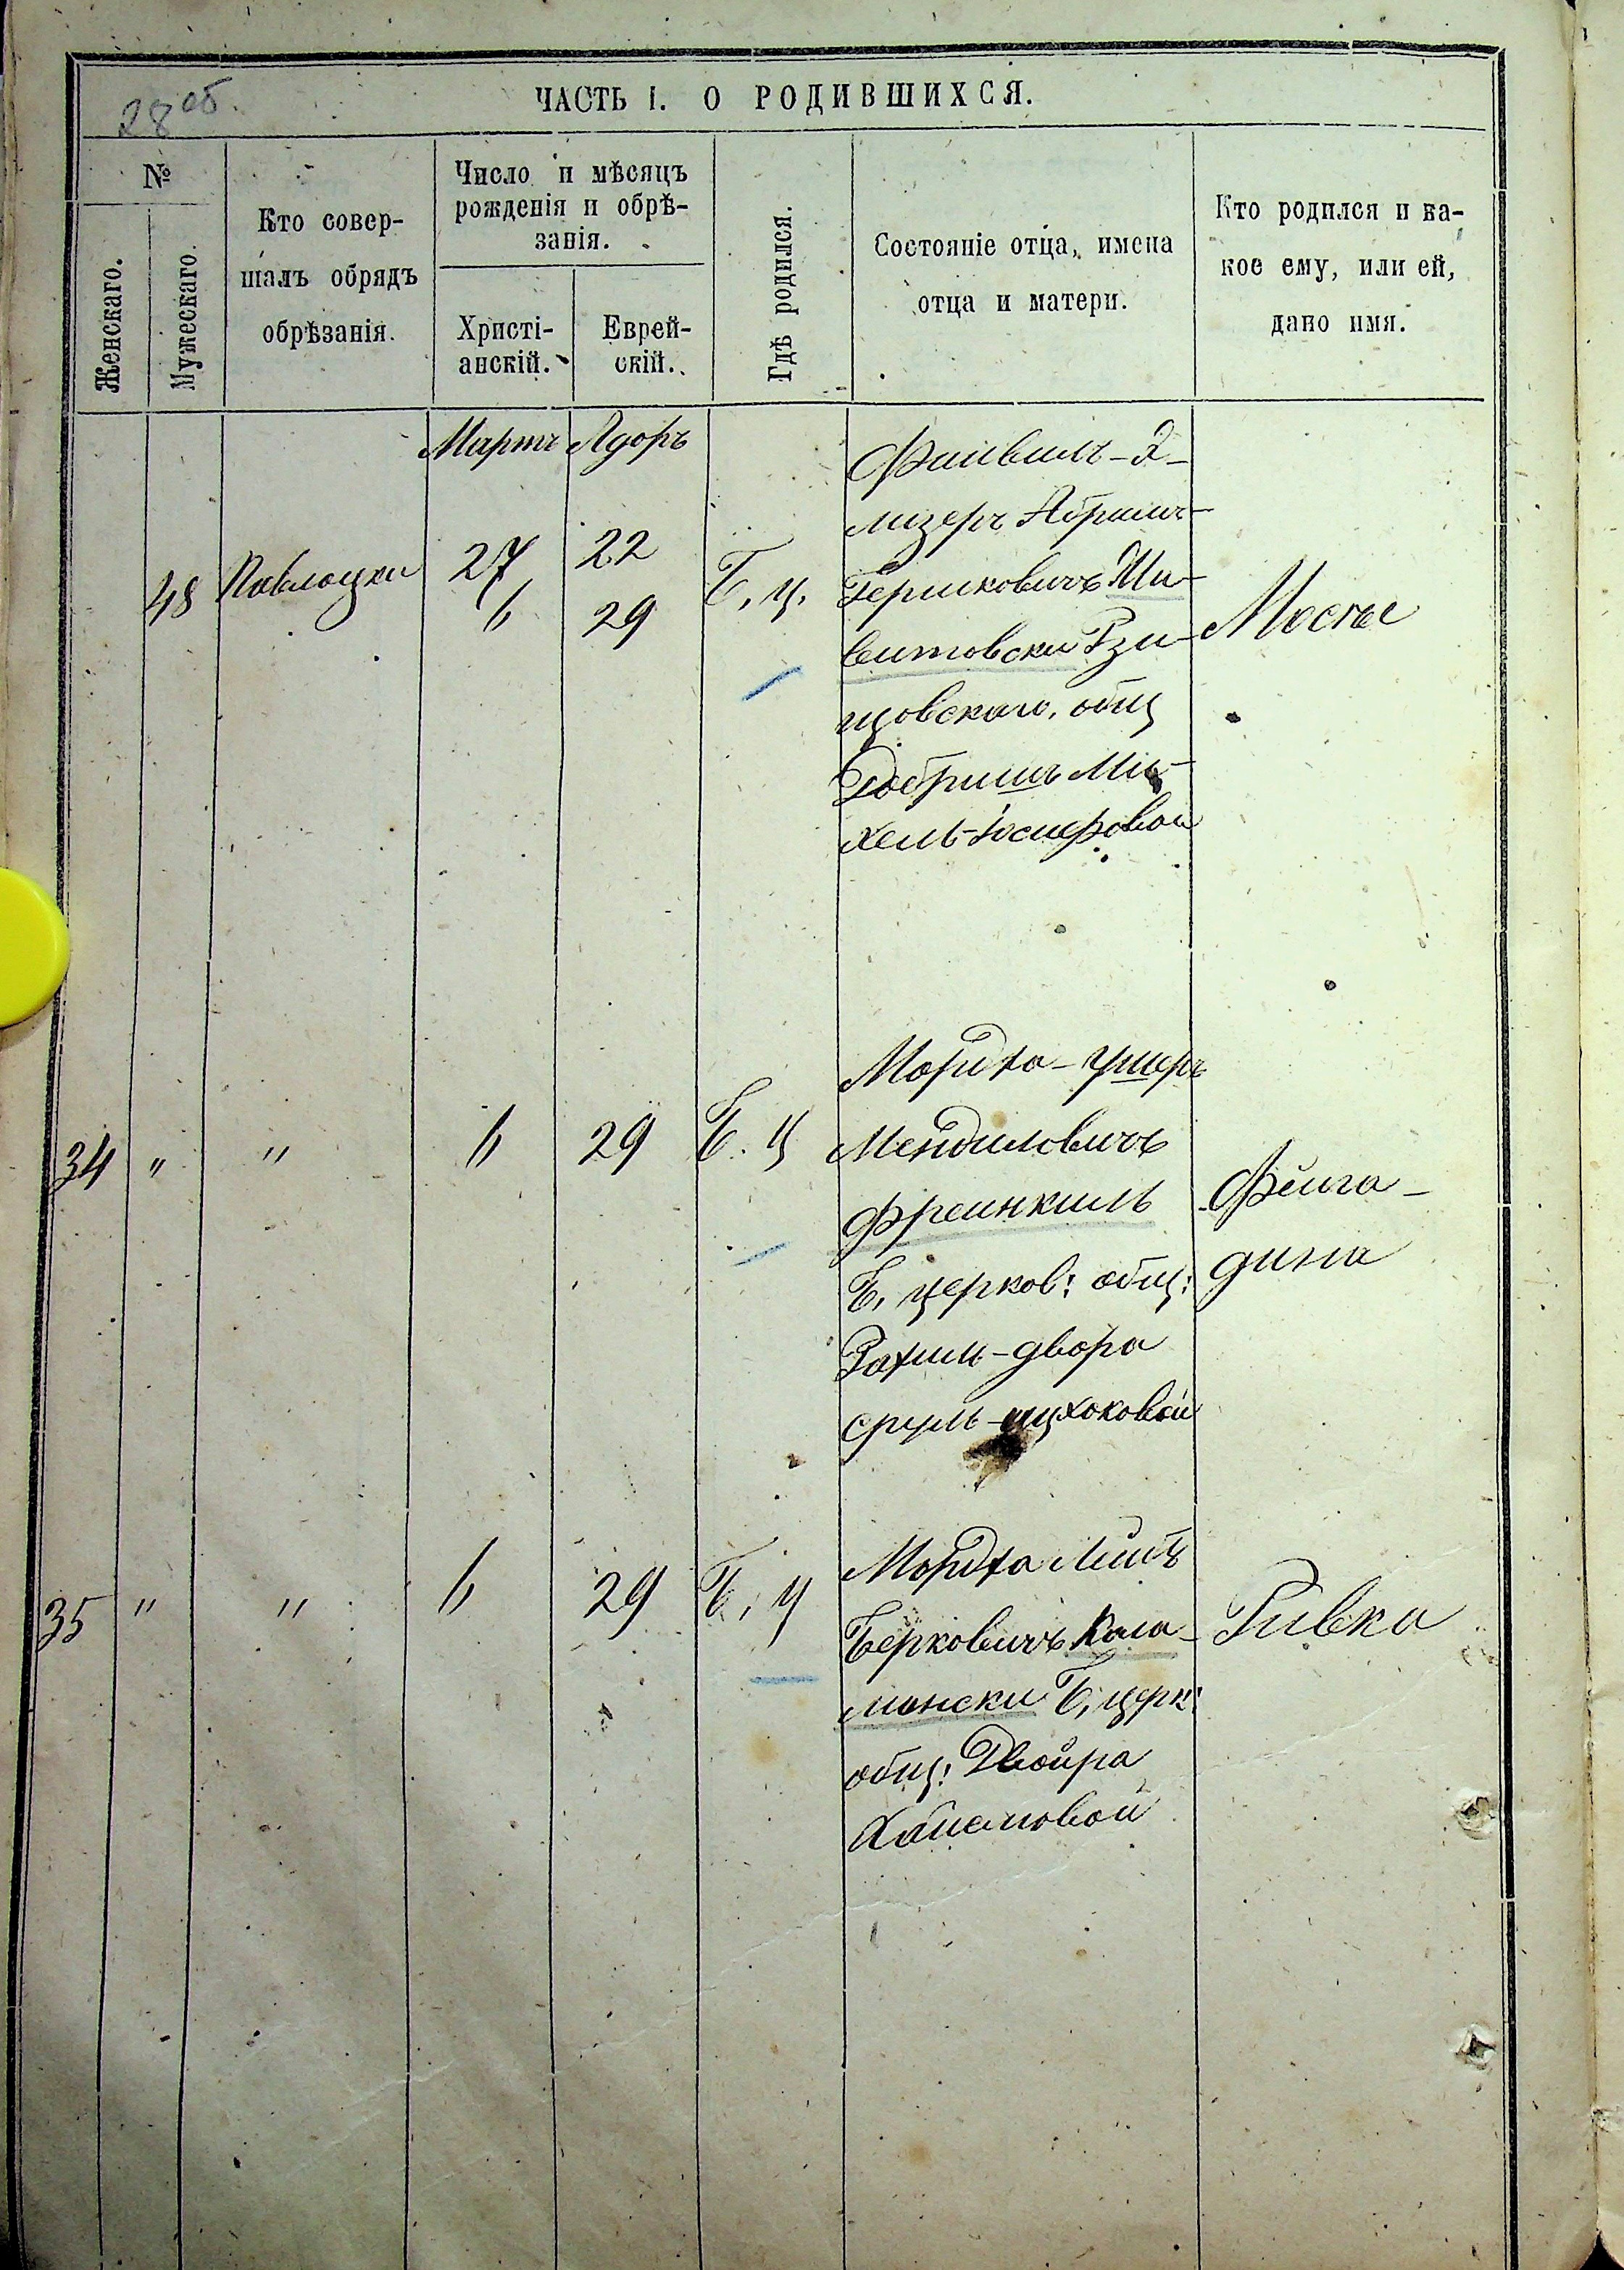 28 об.
ЧАСТЬ I. О РОДИВШИХСЯ.
№
Женскаго.
Мужескаго.
Кто совер-
шалъ обрядъ
обрѣзанія.
Число и мѣсяцъ
рожденія и обрѣ-
занія.
Христі-
анскій.
Еврей-
скій.
Гдѣ родился.
Состояніе отца, имена
отца и матери.
Кто родился и ка-
кое ему, или ей,
дано имя.
Мартъ Адоръ
48 Поволоцки
27 22
6 29
Б, ц,
Фаивель-Э-
лизеръ Абрамъ-
Гершковичъ
витовски Рзи-
щовскаго, общ
Добришъ Ми-
хель-Іосифовои
Мостье
34 " " 6 29 Б. ц
Мордха-Ушеръ
Мендиловичъ
Френкиль
Б, церков: общ:
Рахиль-двора
сруль-ицхоковой
Фейга-
дина
35 " " 6 29 Б, ц
Мордха Лейбъ
Берковичъ Кала-
мански Б, церк:
общ: Двойра
Хаимовой
Ривка